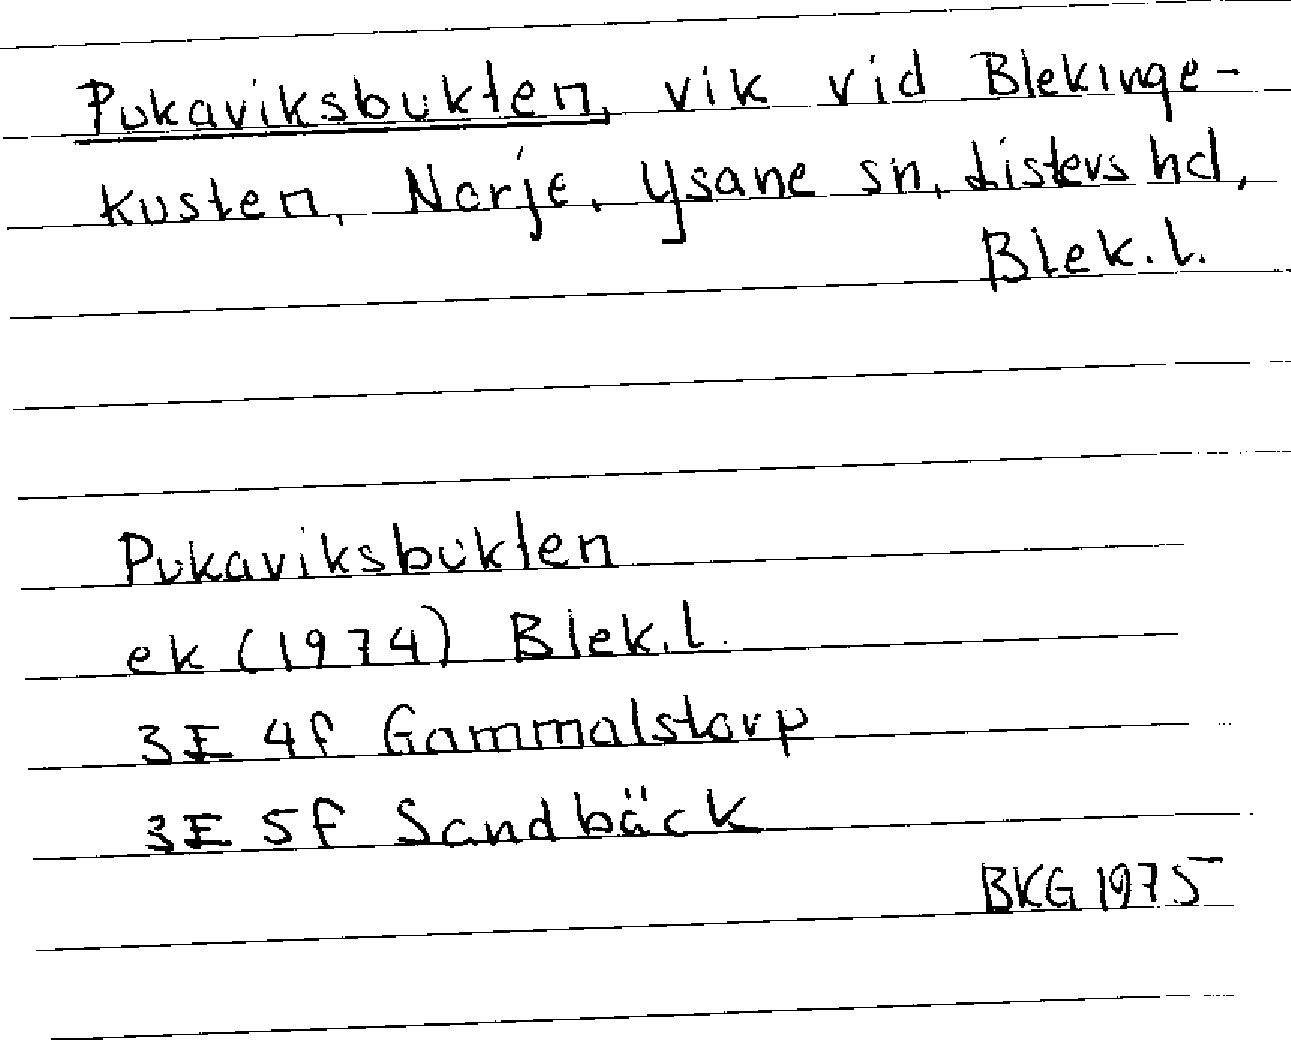 Pukaviksbukten, vik vid Blekinge-
kusten, Norje, Ysane sn, Listers hd,
Blek.l.
Pukaviksbukten
ek (1974) Blek.l.
3E 4f Gammalstorp
3E 5f Sandbäck
BKG 1975